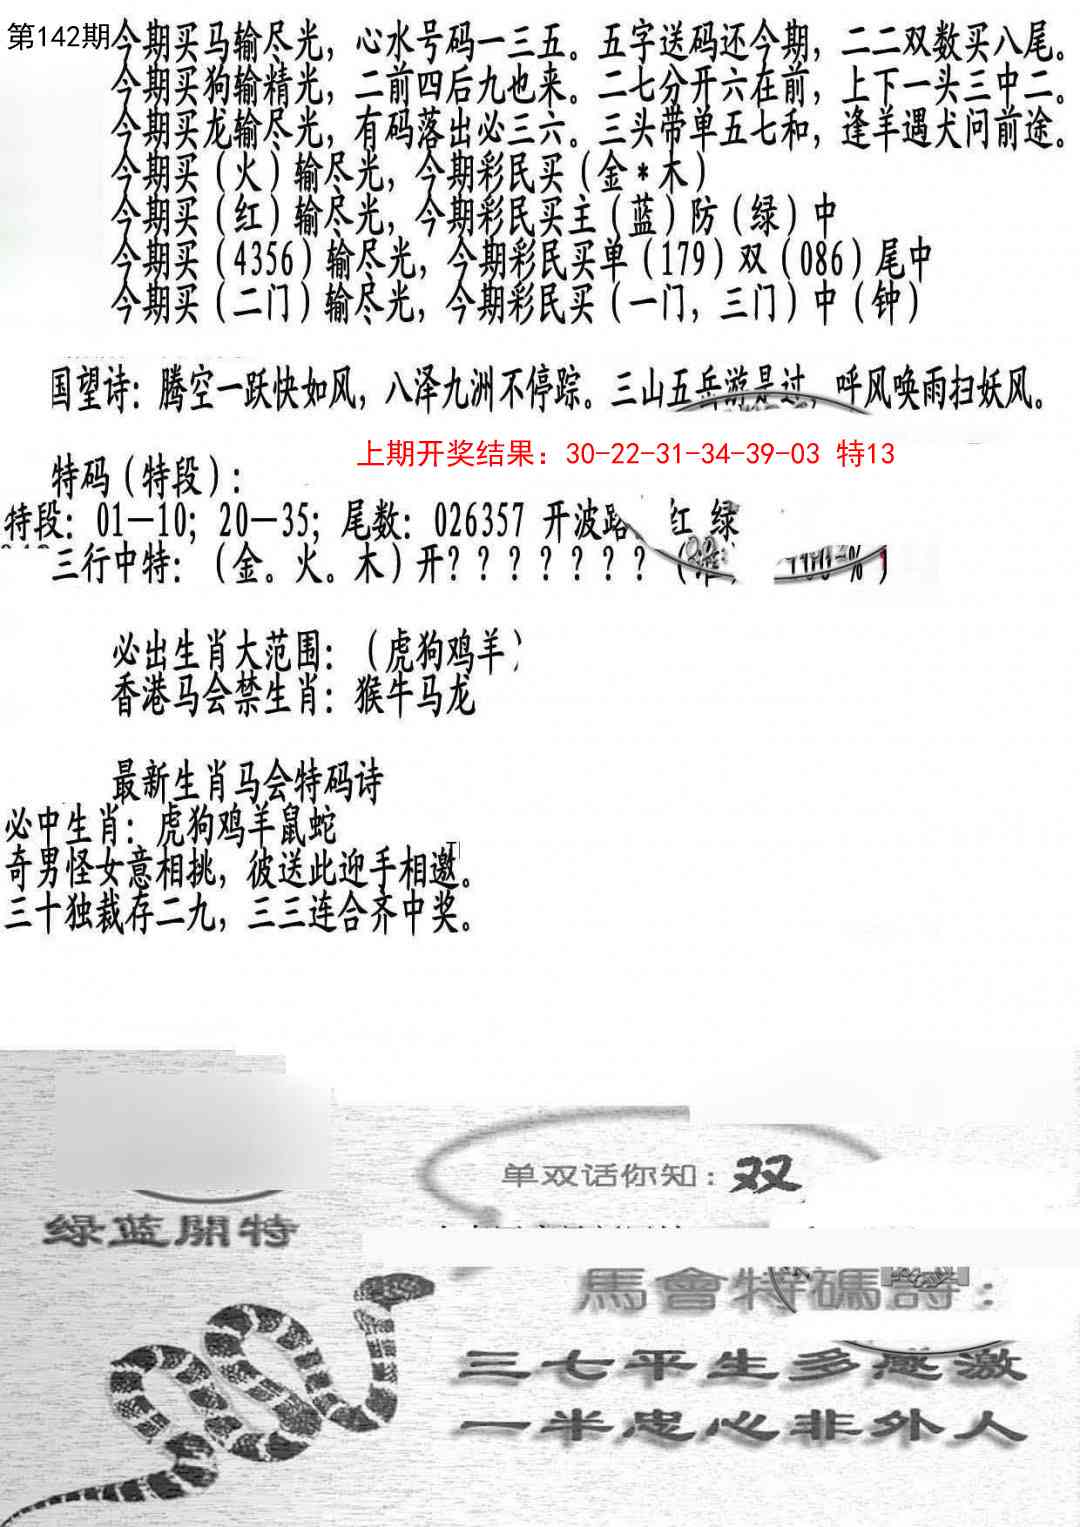 第142期今期买马输尽光，心水号码一三五。五字送码还今期，二二双数买八尾。
今期买狗输精光，二前四后九也来。二七分开六在前，上下一头三中二。
今期买龙输尽光，有码落出必三六。三头带单五七和，逢羊遇犬问前途。
今期买（火）输尽光，今期彩民买（金*木）
今期买（红）输尽光，今期彩民买主（蓝）防（绿）中
今期买（4356）输尽光，今期彩民买单（179）双（086）尾中
今期买（二门）输尽光，今期彩民买（一门，三门）中（钟）
国望诗：腾空一跃快如风，八泽九洲不停踪。三山五岳游是过，呼风唤雨扫妖风。
上期开奖结果：30-22-31-34-39-03 特13
特码（特段）：
特段：01—10；20—35；尾数：026357 开波路 红 绿
三行中特：（金。火。木）开？？？？？？？
必出生肖大范围：（虎狗鸡羊）
香港马会禁生肖：猴牛马龙
最新生肖马会特码诗
必中生肖：虎狗鸡羊鼠蛇
奇男怪女意相挑，彼送此迎手相邀。
三十独裁存二九，三三连合齐中奖。
单双话你知：双
绿蓝開特
馬會特碼詩：
三七平生多感激
一半忠心非外人